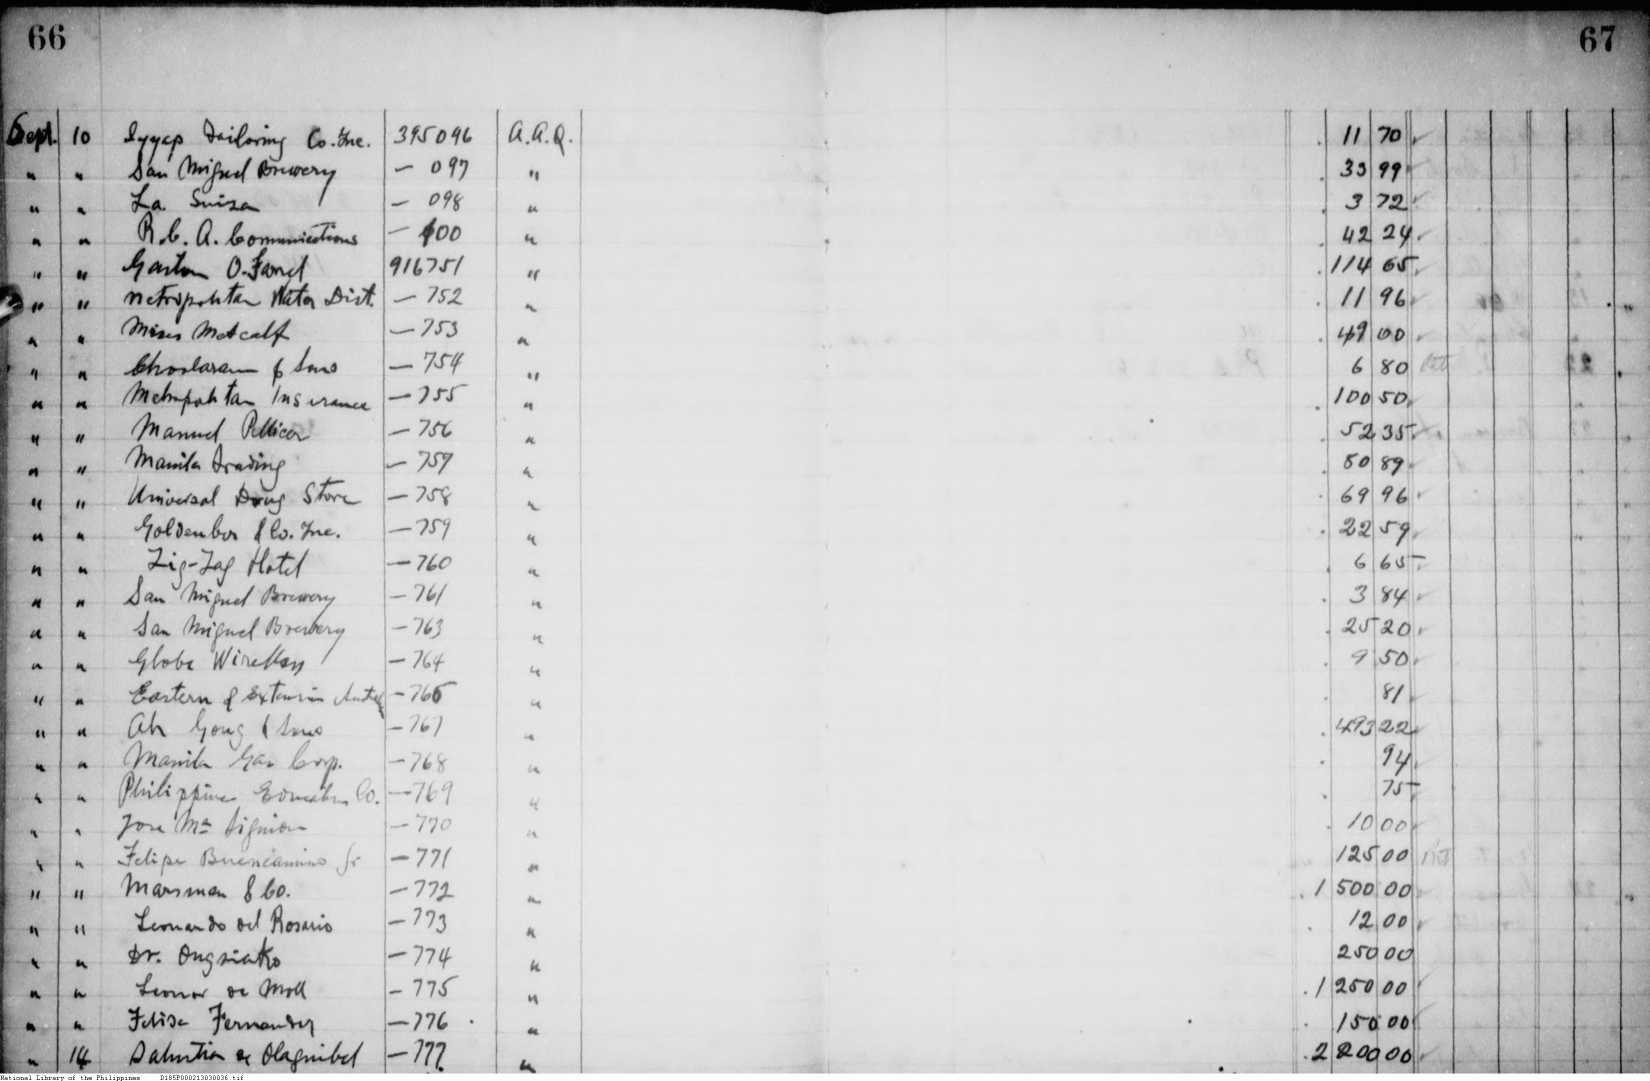 66 67
Sept. 10 Syyap Tailoring Co. Inc. 395096 A.A.Q. 11 70
" " San Miguel Brewery — 097 " 33 99
" " La Suiza — 098 " 3 72
" " R.C.A. Communications — 100 " 42 24
" " Gaston O'Farrel 916751 " 114 65
" " Metropolitan Water Dist. — 752 " 11 96
" " Misses Metcalf — 753 " 49 00
" " — 754 " 6 80
" " Metropolitan Insurance — 755 " 100 50
" " Manuel Pellicer — 756 " 52 35
" " Manila Trading — 757 " 50 89
" " Universal Drug Store — 758 " 69 96
" " Goldenberg & Co. Inc. — 759 " 22 59
" " Zig-Zag Hotel — 760 " 6 65
" " San Miguel Brewery — 761 " 3 84
" " San Miguel Brewery — 763 " 25 20
" " Globe Wireless — 764 " 9 50
" " Eastern & Extension — 765 " 81
" " Ah Gong & Sons — 767 " 493 22
" " Manila Gas Corp. — 768 " 94
" " Philippine Education Co. — 769 " 75
" " Jose Ma — 770 " 10 00
" " Felipe Buencamino Jr — 771 " 125 00
" " Marsman & Co. — 772 " 1 500 00
" " Leonardo del Rosario — 773 " 12 00
" " Dr. Ongsiako — 774 " 250 00
" " Leonor de Moll — 775 " 1 250 00
" " Felisa Fernandez — 776 " 150 00
" 14 de Olaguibel — 777 " 2 200 00
National Library of the Philippines D185P000213030036.tif